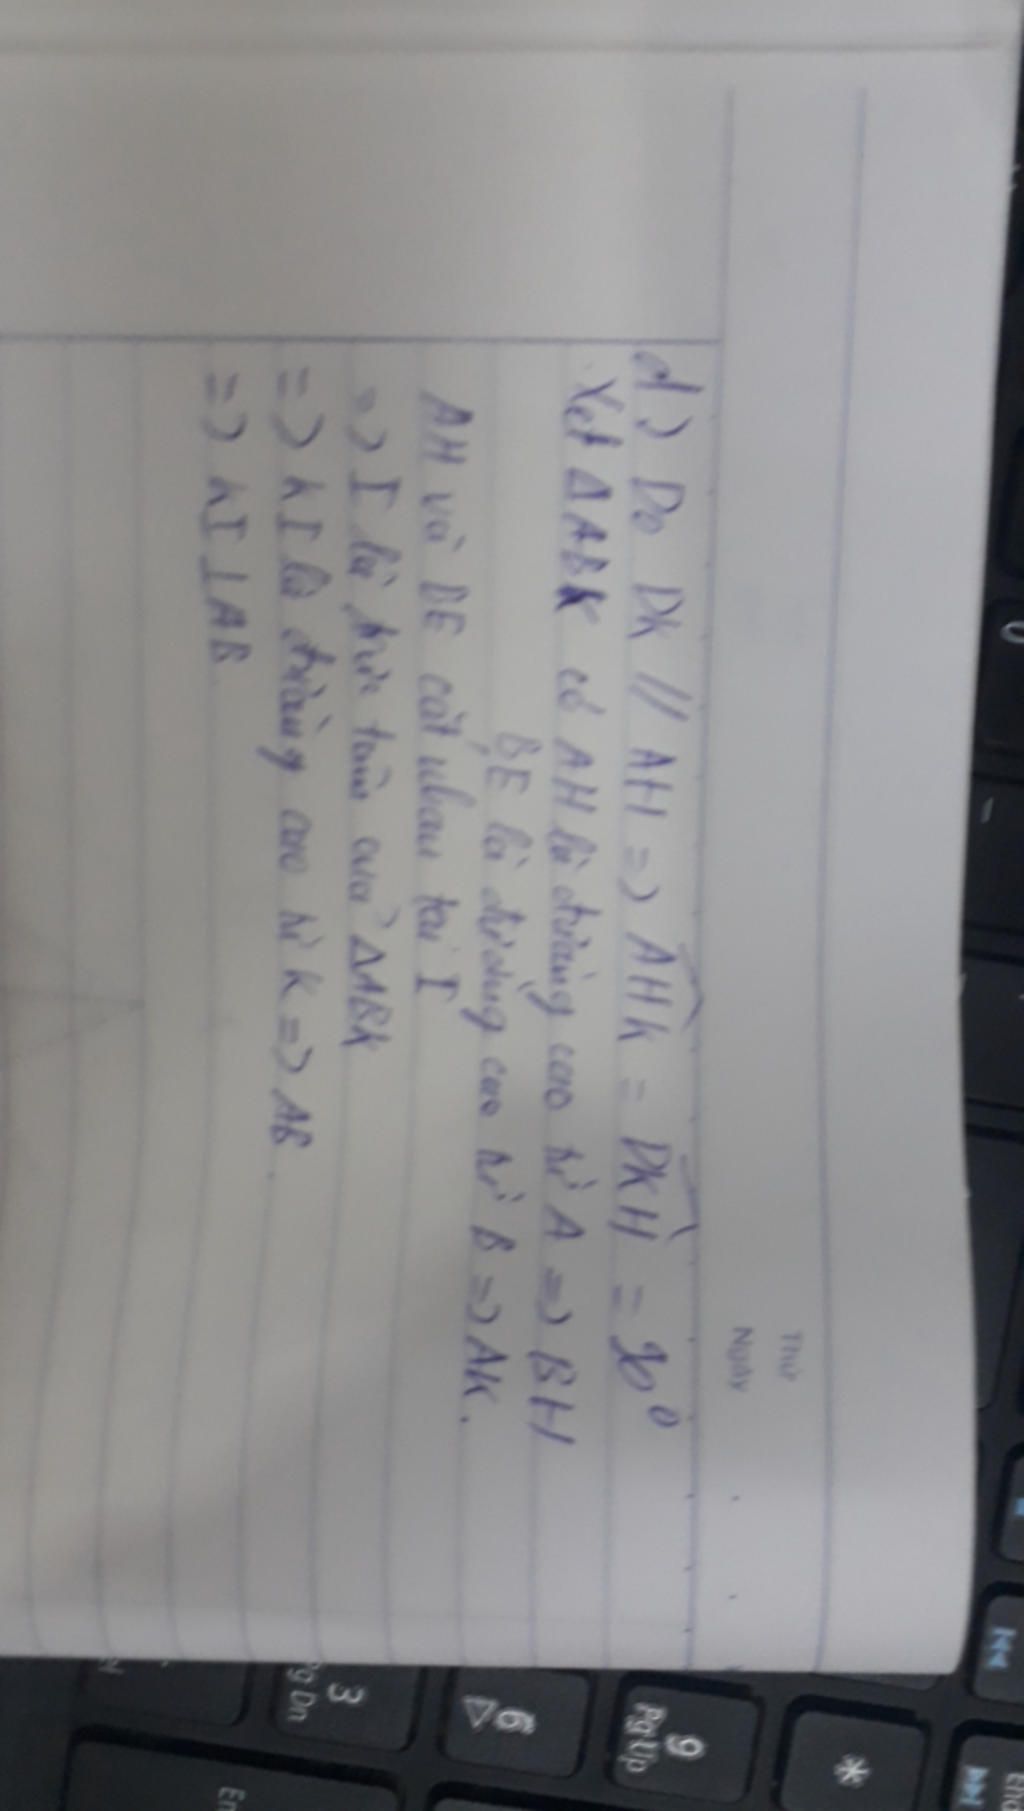 Thứ
Ngày
d) Do DK // AH => AHK = DKH = 90°
Xét ΔABK có AH là đường cao từ A => BH
BE là đường cao từ B => AK.
AH và BE cắt nhau tại I
=> I là trực tâm của ΔABK
=> KI là đường cao từ K => AB.
=> KI ⊥ AB
9
PgUp
6
3
Pg Dn
*
En
End